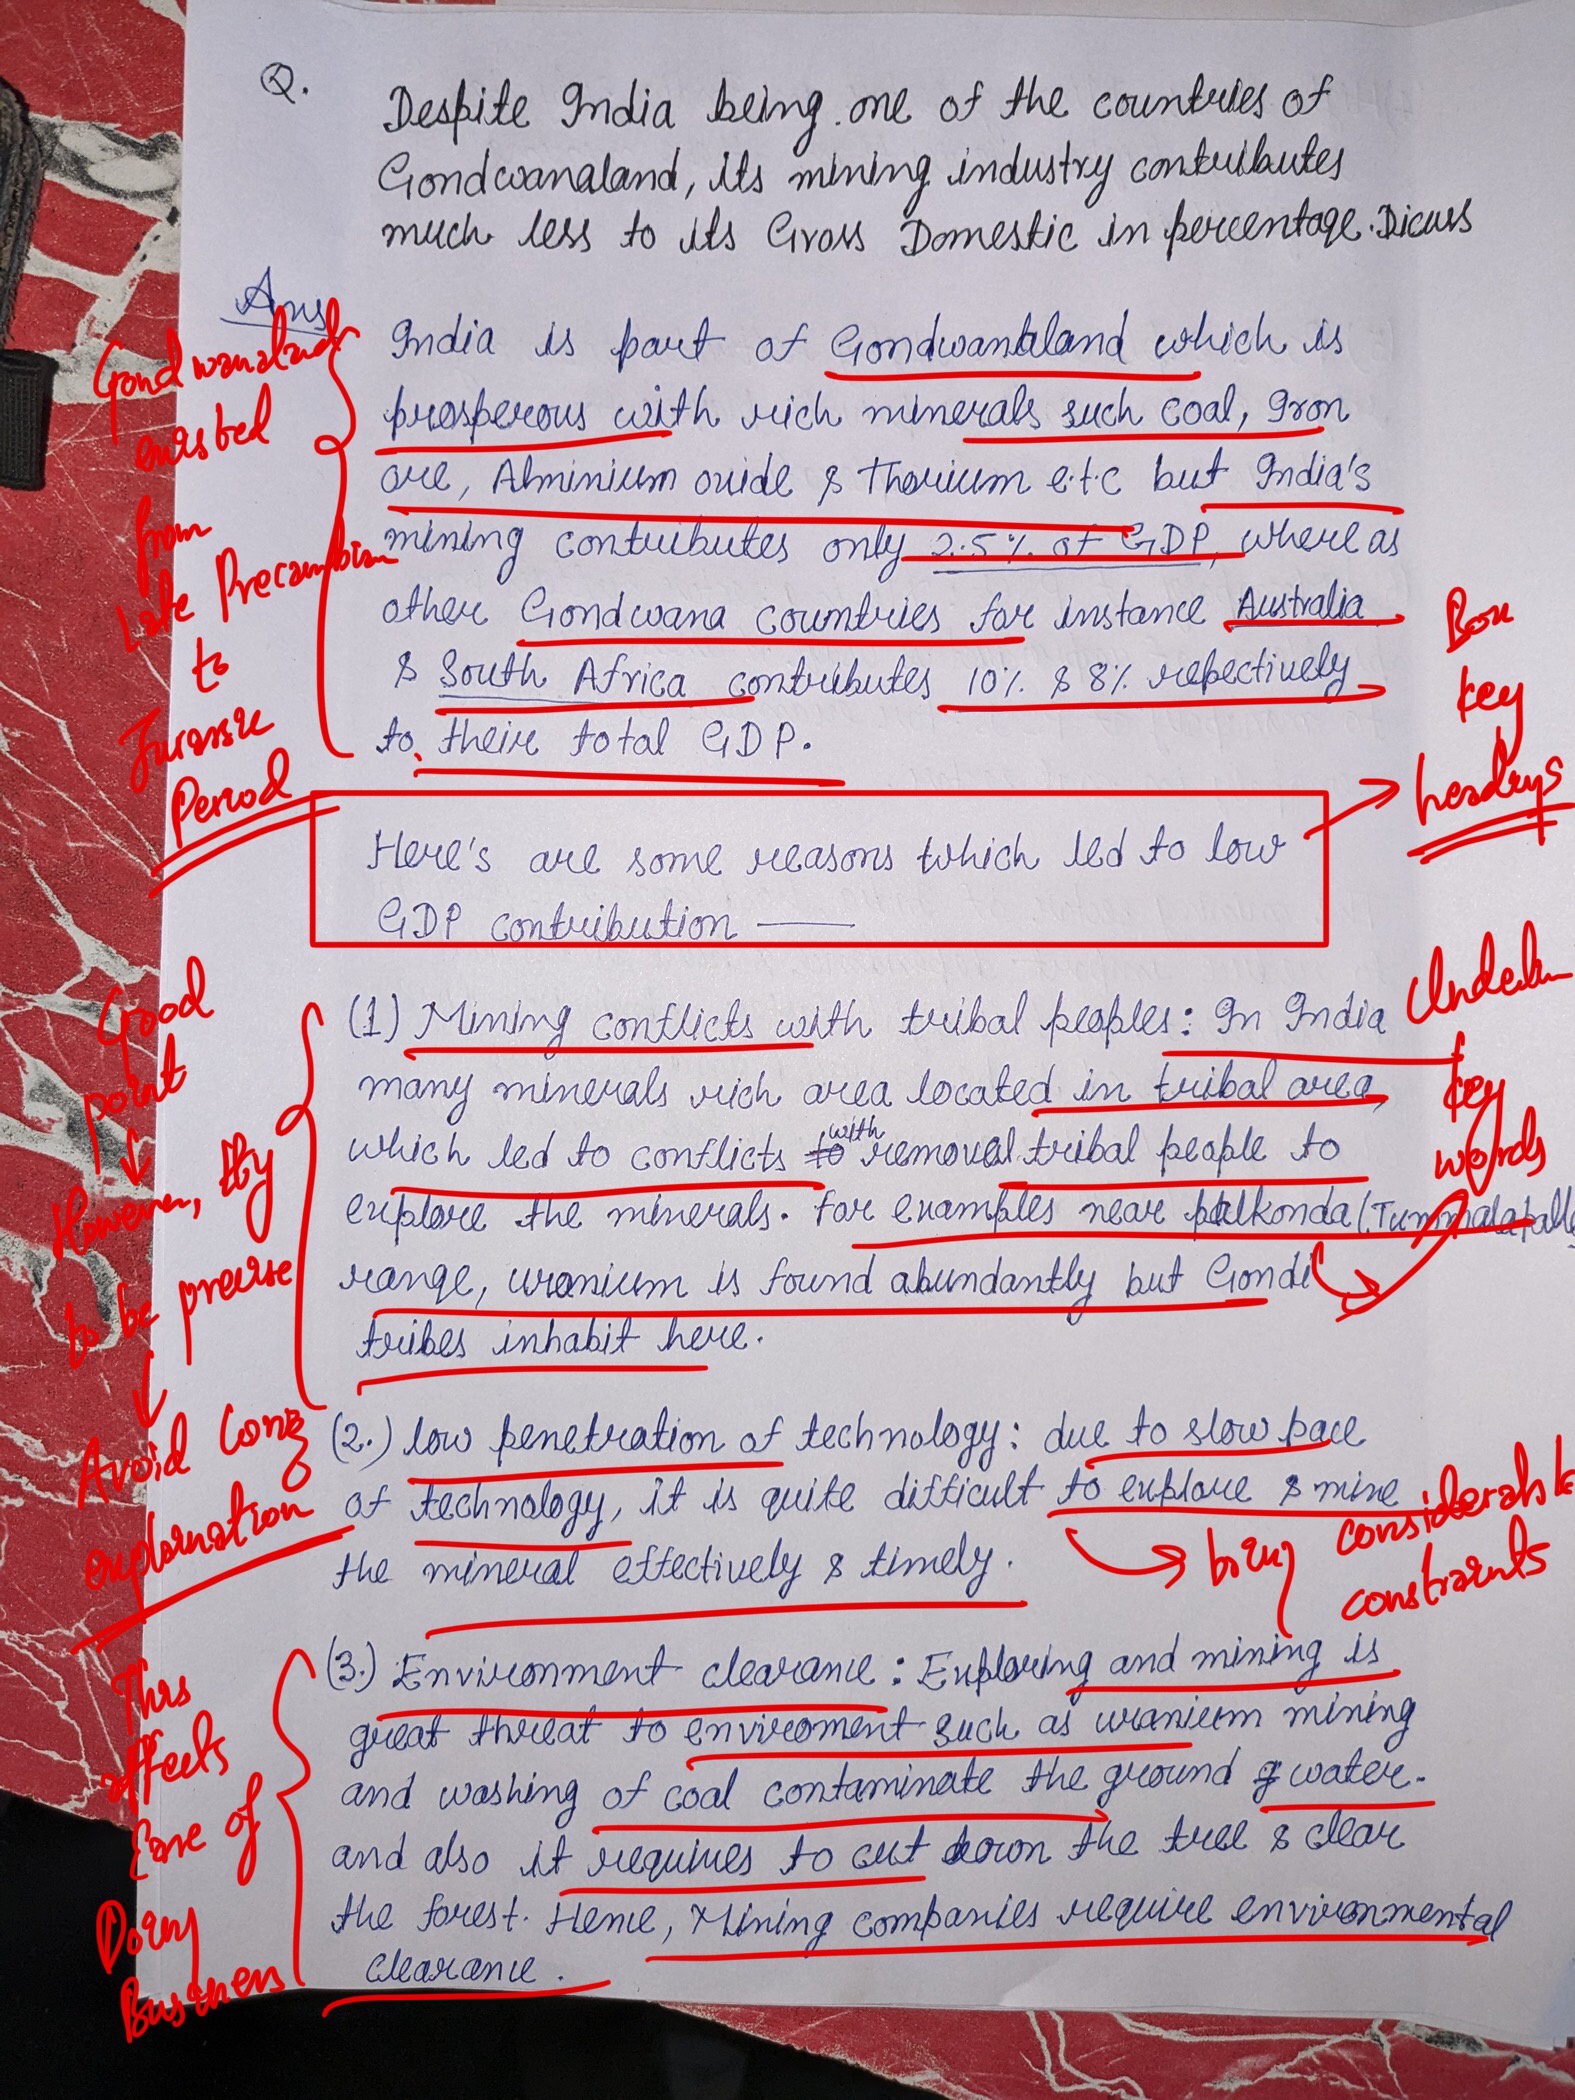 Q.
Despite India being one of the countries of
Gondwanaland, its mining industry contributes
much less to its Gross Domestic in percentage. Dicuss
Ans
India is part of Gondwanaland which is
prosperous with rich minerals such coal, Iron
ore, Alminium oxide & Thorium e.t.c but India's
mining contributes only 2.5% of GDP, where as
other Gondwana countries for instance Australia
& South Africa contributes 10% & 8% repectively
to their total GDP.
Gondwanaland
existed
from
late Precambrian
to
Jurassic
Period
Here's are some reasons which led to low
GDP contribution —
Box
key
headings
(1) Mining conflicts with tribal peoples: In India
many minerals rich area located in tribal area,
which led to conflicts to with removal tribal people to
explore the minerals. For examples near palkonda (Tummalapalle
range, uranium is found abundantly but Gondi
tribes inhabit here.
Good
point
However, try
to be precise
Avoid long
explanation
Underline
key
words
(2.) low penetration of technology: due to slow pace
of technology, it is quite difficult to explore & mine
the mineral effectively & timely.
bring considerable
constraints
(3.) Environment clearance: Exploring and mining is
great threat to enviroment such as uranium mining
and washing of coal contaminate the ground water.
and also it requires to cut down the tree & clear
the forest. Hence, Mining companies require environmental
clearance.
This
affects
Ease of
Doing
Business